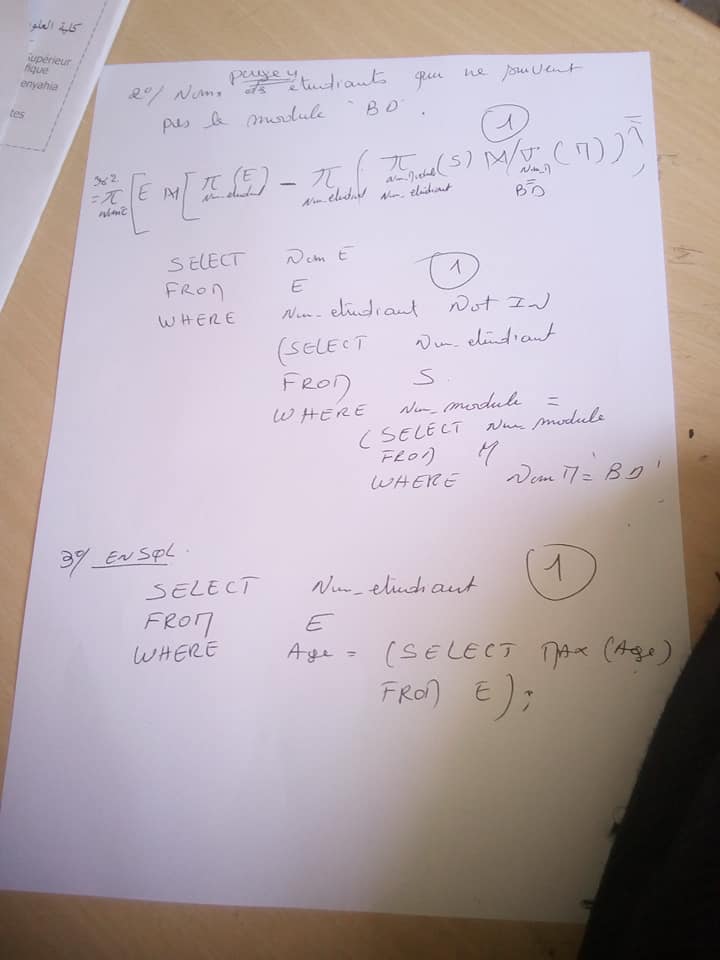 كلية العلو
Supérieur
fique
enyahia
tes
2°/ Noms des étudiants qui ne suivent
pas le module 'BD'.
1
= π [E ⋈ [π (E) − π (π (S) ⋈ σ (M))
NomE Num_etudiant Num_etudiant Num_Module Nom_M
Num_etudiant = BD
SELECT Nom E
1
FROM E
WHERE Num_etudiant Not IN
(SELECT Num_etudiant
FROM S.
WHERE Num_module =
(SELECT Num module
FROM M
WHERE Nom M = 'BD'
3°/ EN SQL.
1
SELECT Num_etudiant
FROM E
WHERE Age = (SELECT MAX (Age)
FROM E);